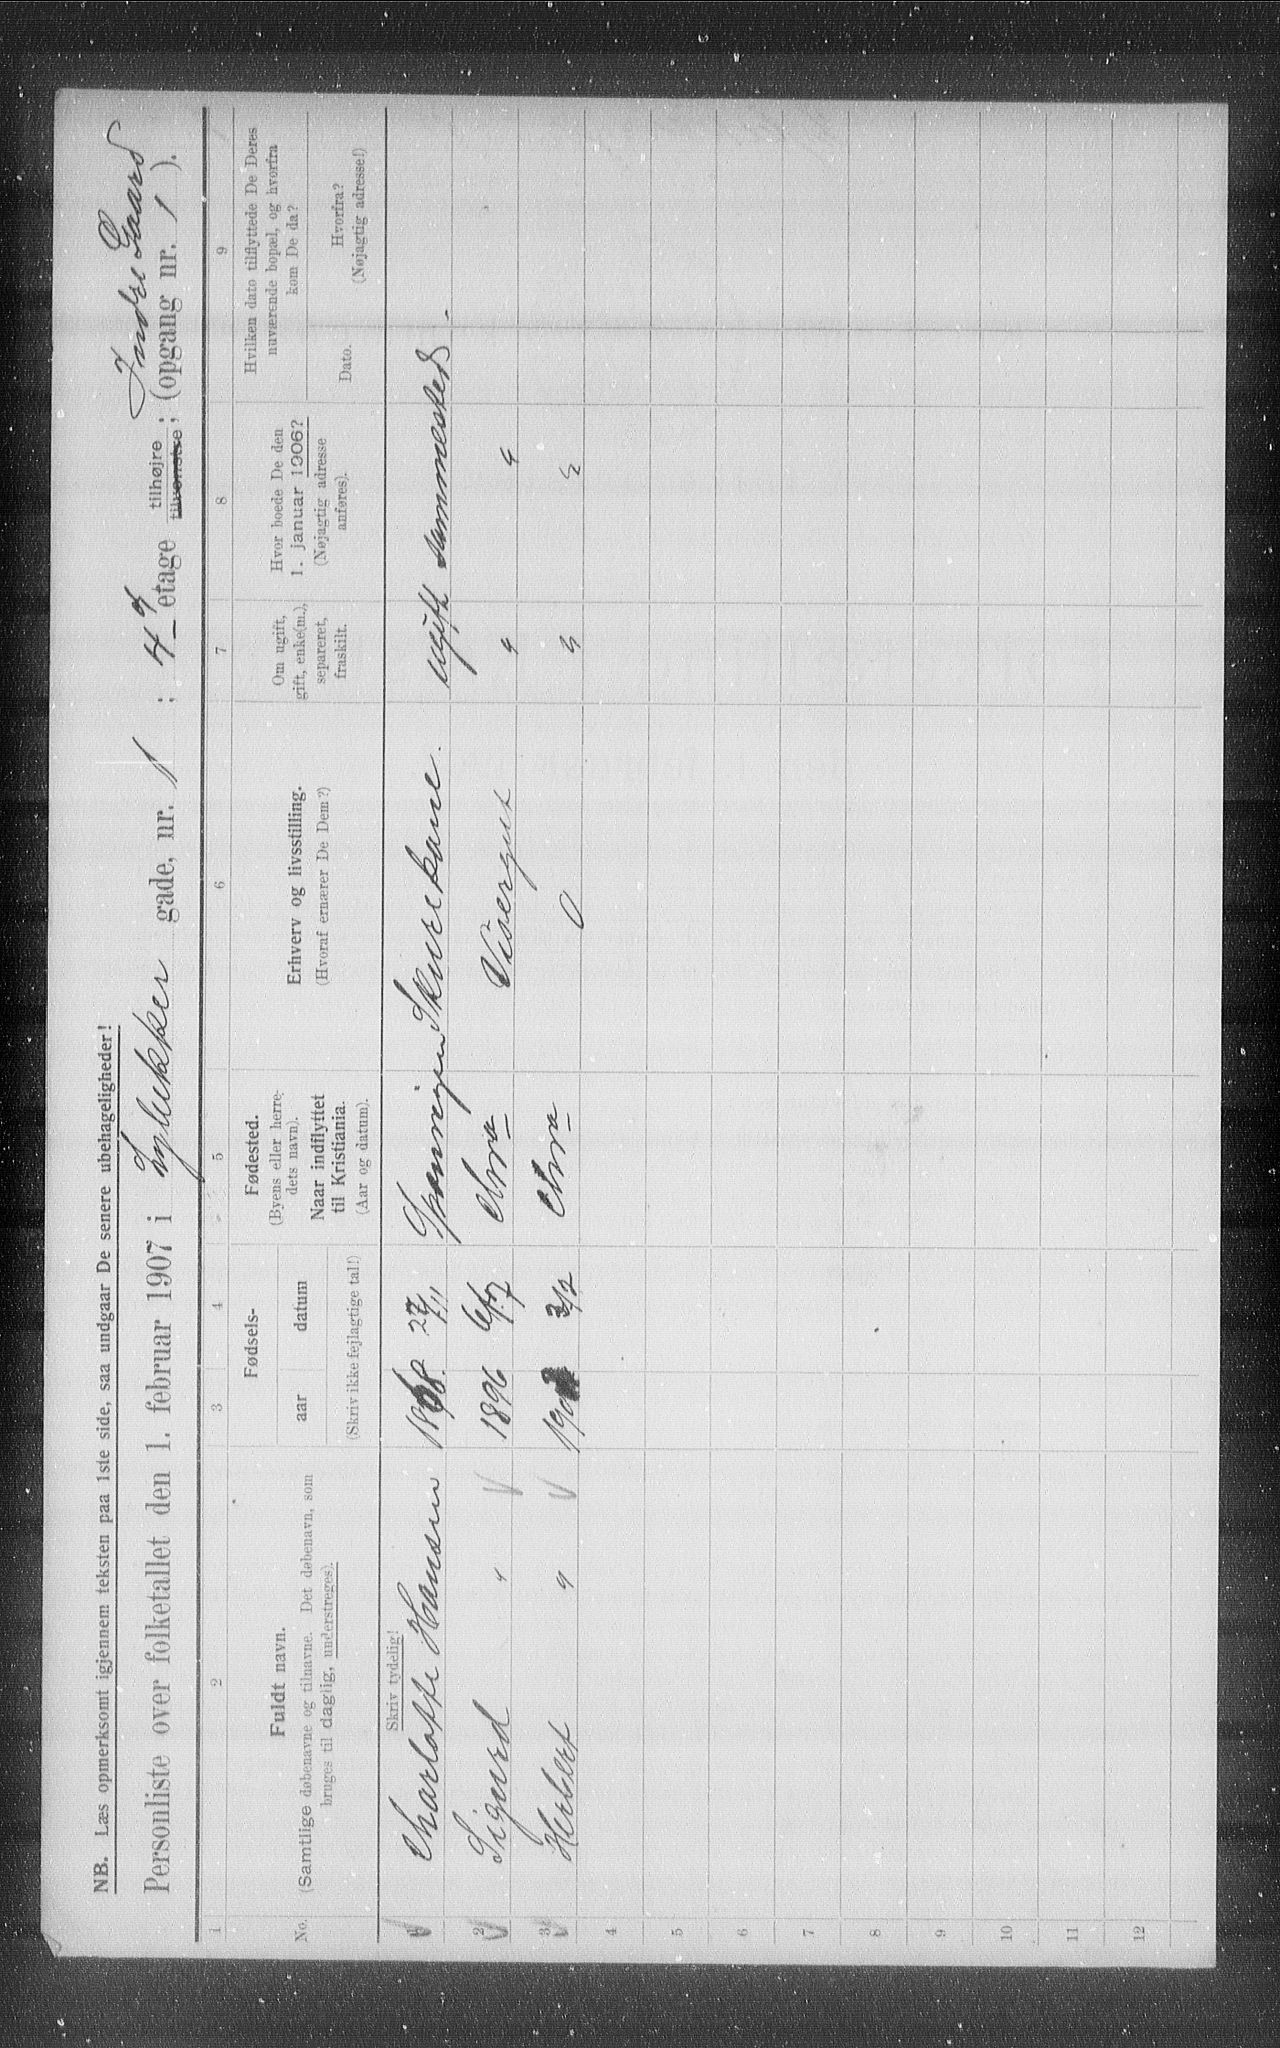 NB. Læs opmerksomt igjennem teksten paa 1ste side, saa undgaar De senere ubehageligheder!
Indre Gaard
Personliste over folketallet den 1. februar 1907 i Lylukker gade, nr. 1 ; 4 etage tilhøjre tilvenstre ; (opgang nr. 1 ).
1 2 3 4 5 6 7 8 9
No.
Fuldt navn.
(Samtlige døbenavne og tilnavne. Det døbenavn, som
bruges til daglig, understreges).
Fødsels-
aar datum
(Skriv ikke fejlagtige tal!)
Fødested.
(Byens eller herre-
dets navn).
Naar indflyttet
til Kristiania.
(Aar og datum).
Erhverv og livsstilling.
(Hvoraf ernærer De Dem?)
Om ugift,
gift, enke(m.),
separeret,
fraskilt.
Hvor boede De den
1. januar 1906?
(Nøjagtig adresse
anføres).
Hvilken dato tilflyttede De Deres
nuværende bopæl, og hvorfra
kom De da?
Dato.
Hvorfra?
(Nøjagtig adresse!)
Skriv tydelig!
1 Charlotte Hansen 1868 27/11 Skurekone. ugift sammested.
2 Sigurd " 1896 6/7 Chra Visergut " "
3 Herbert " Chra 0 " "
4
5
6
7
8
9
10
11
12